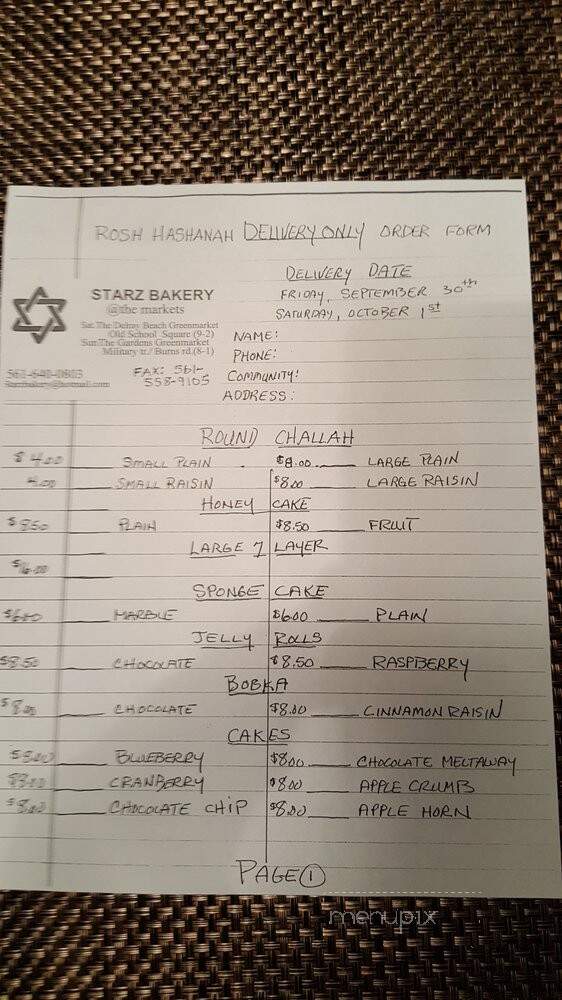 ROSH HASHANAH DELIVERY ONLY ORDER FORM
DELIVERY DATE
FRIDAY, SEPTEMBER 30th
SATURDAY, OCTOBER 1st
STARZ BAKERY
@the markets
Sat: The Delray Beach Greenmarket
Old School Square (9-2)
Sun: The Gardens Greenmarket
Military tr./ Burns rd.(8-1)
FAX: 561-
558-9105
NAME:
PHONE:
COMMUNITY:
ADDRESS:
ROUND CHALLAH
$4.00 SMALL PLAIN $8.00 LARGE PLAIN
4.00 SMALL RAISIN $8.00 LARGE RAISIN
HONEY CAKE
$8.50 PLAIN $8.50 FRUIT
LARGE 7 LAYER
$16.00
SPONGE CAKE
$6.00 MARBLE $6.00 PLAIN
JELLY ROLLS
$8.50 CHOCOLATE $8.50 RASPBERRY
BOBKA
$8.00 CHOCOLATE $8.00 CINNAMON RAISIN
CAKES
$8.00 BLUEBERRY $8.00 CHOCOLATE MELTAWAY
$8.00 CRANBERRY $8.00 APPLE CRUMB
$8.00 CHOCOLATE CHIP $8.00 APPLE HORN
PAGE 1
menupix